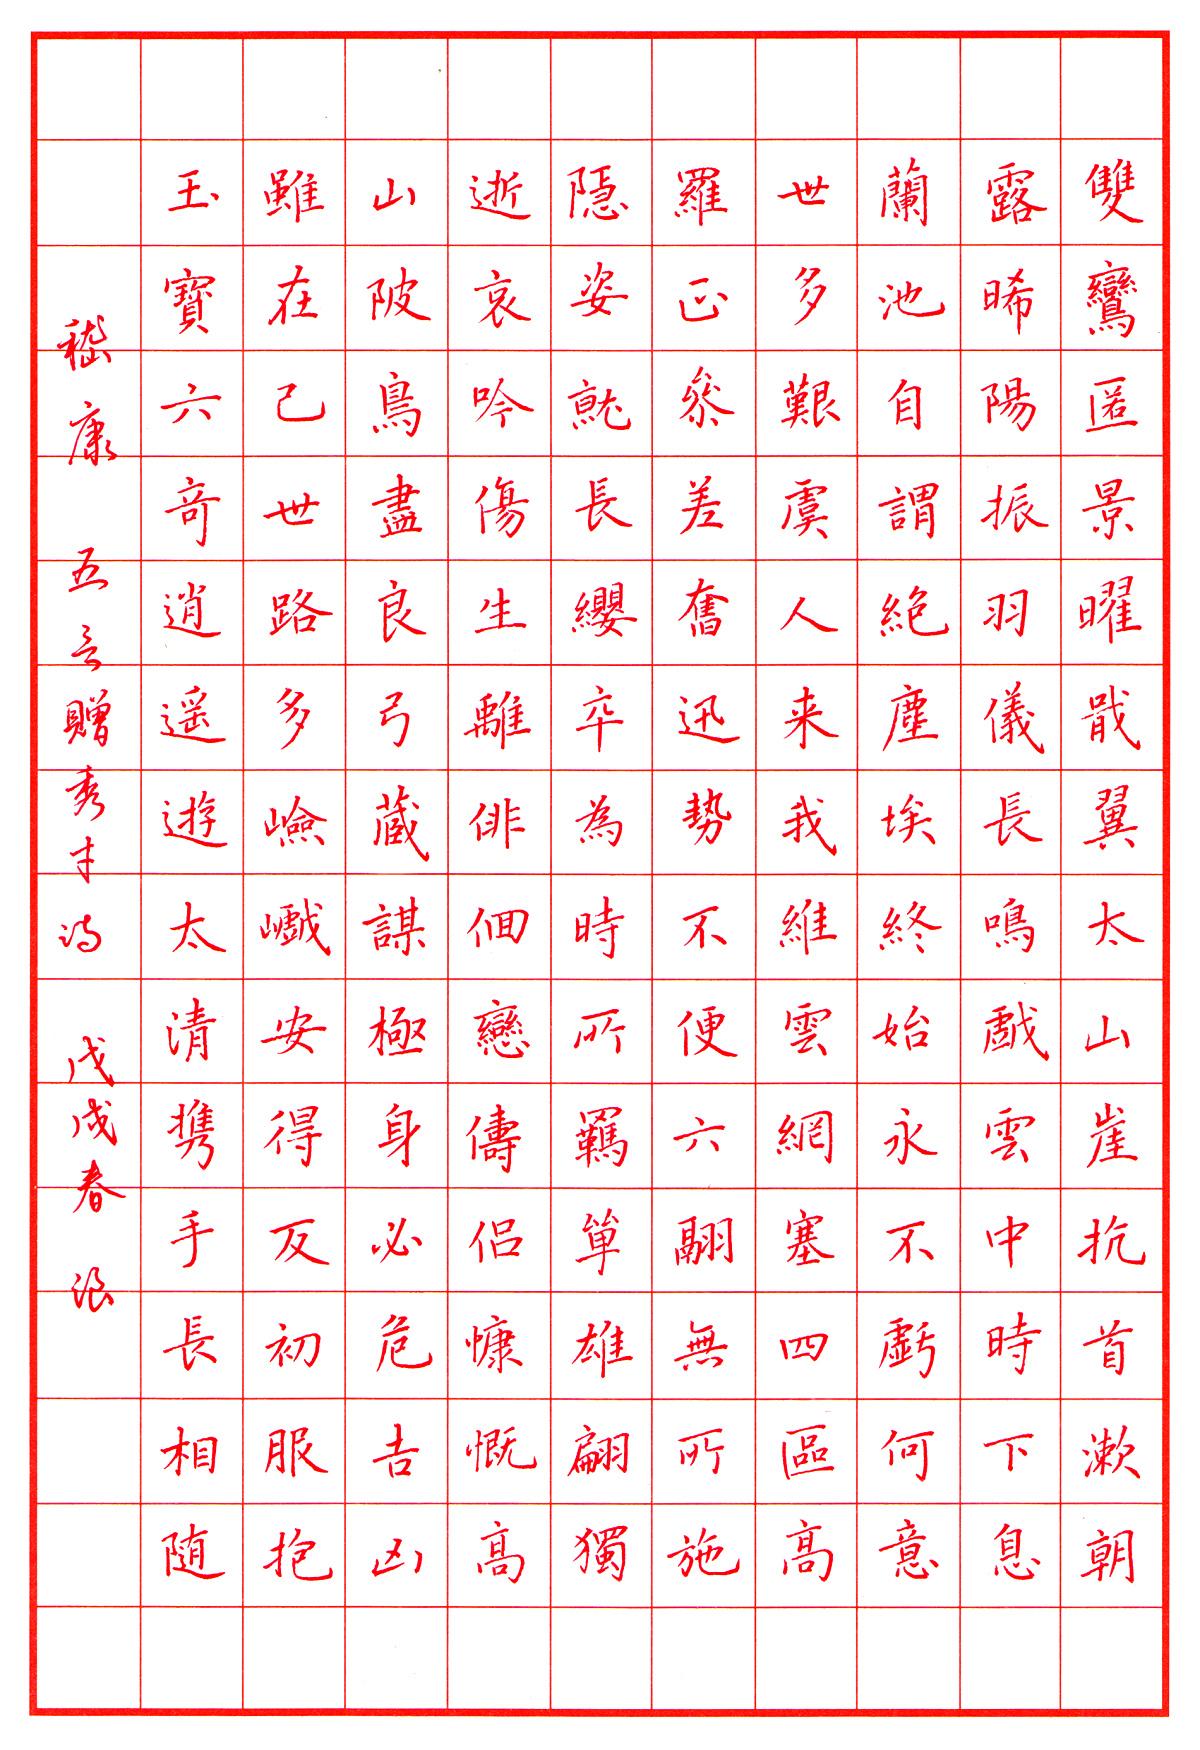 雙鸞匿景曜戢翼太山崖抗首漱朝
露晞陽振羽儀長鳴戲雲中時下息
蘭池自謂絕塵埃終始永不虧何意
世多艱虞人来我維雲網塞四區高
羅正参差奮迅勢不便六翮無所施
隱姿就長纓卒為時所羈單雄翩獨
逝哀吟傷生離徘徊戀儔侶慷慨高
山陂鳥盡良弓蔵謀極身必危吉凶
雖在己世路多嶮巇安得反初服抱
玉寶六奇逍遥遊太清攜手長相随
嵇康 五言贈秀才诗 戊戌春 浪